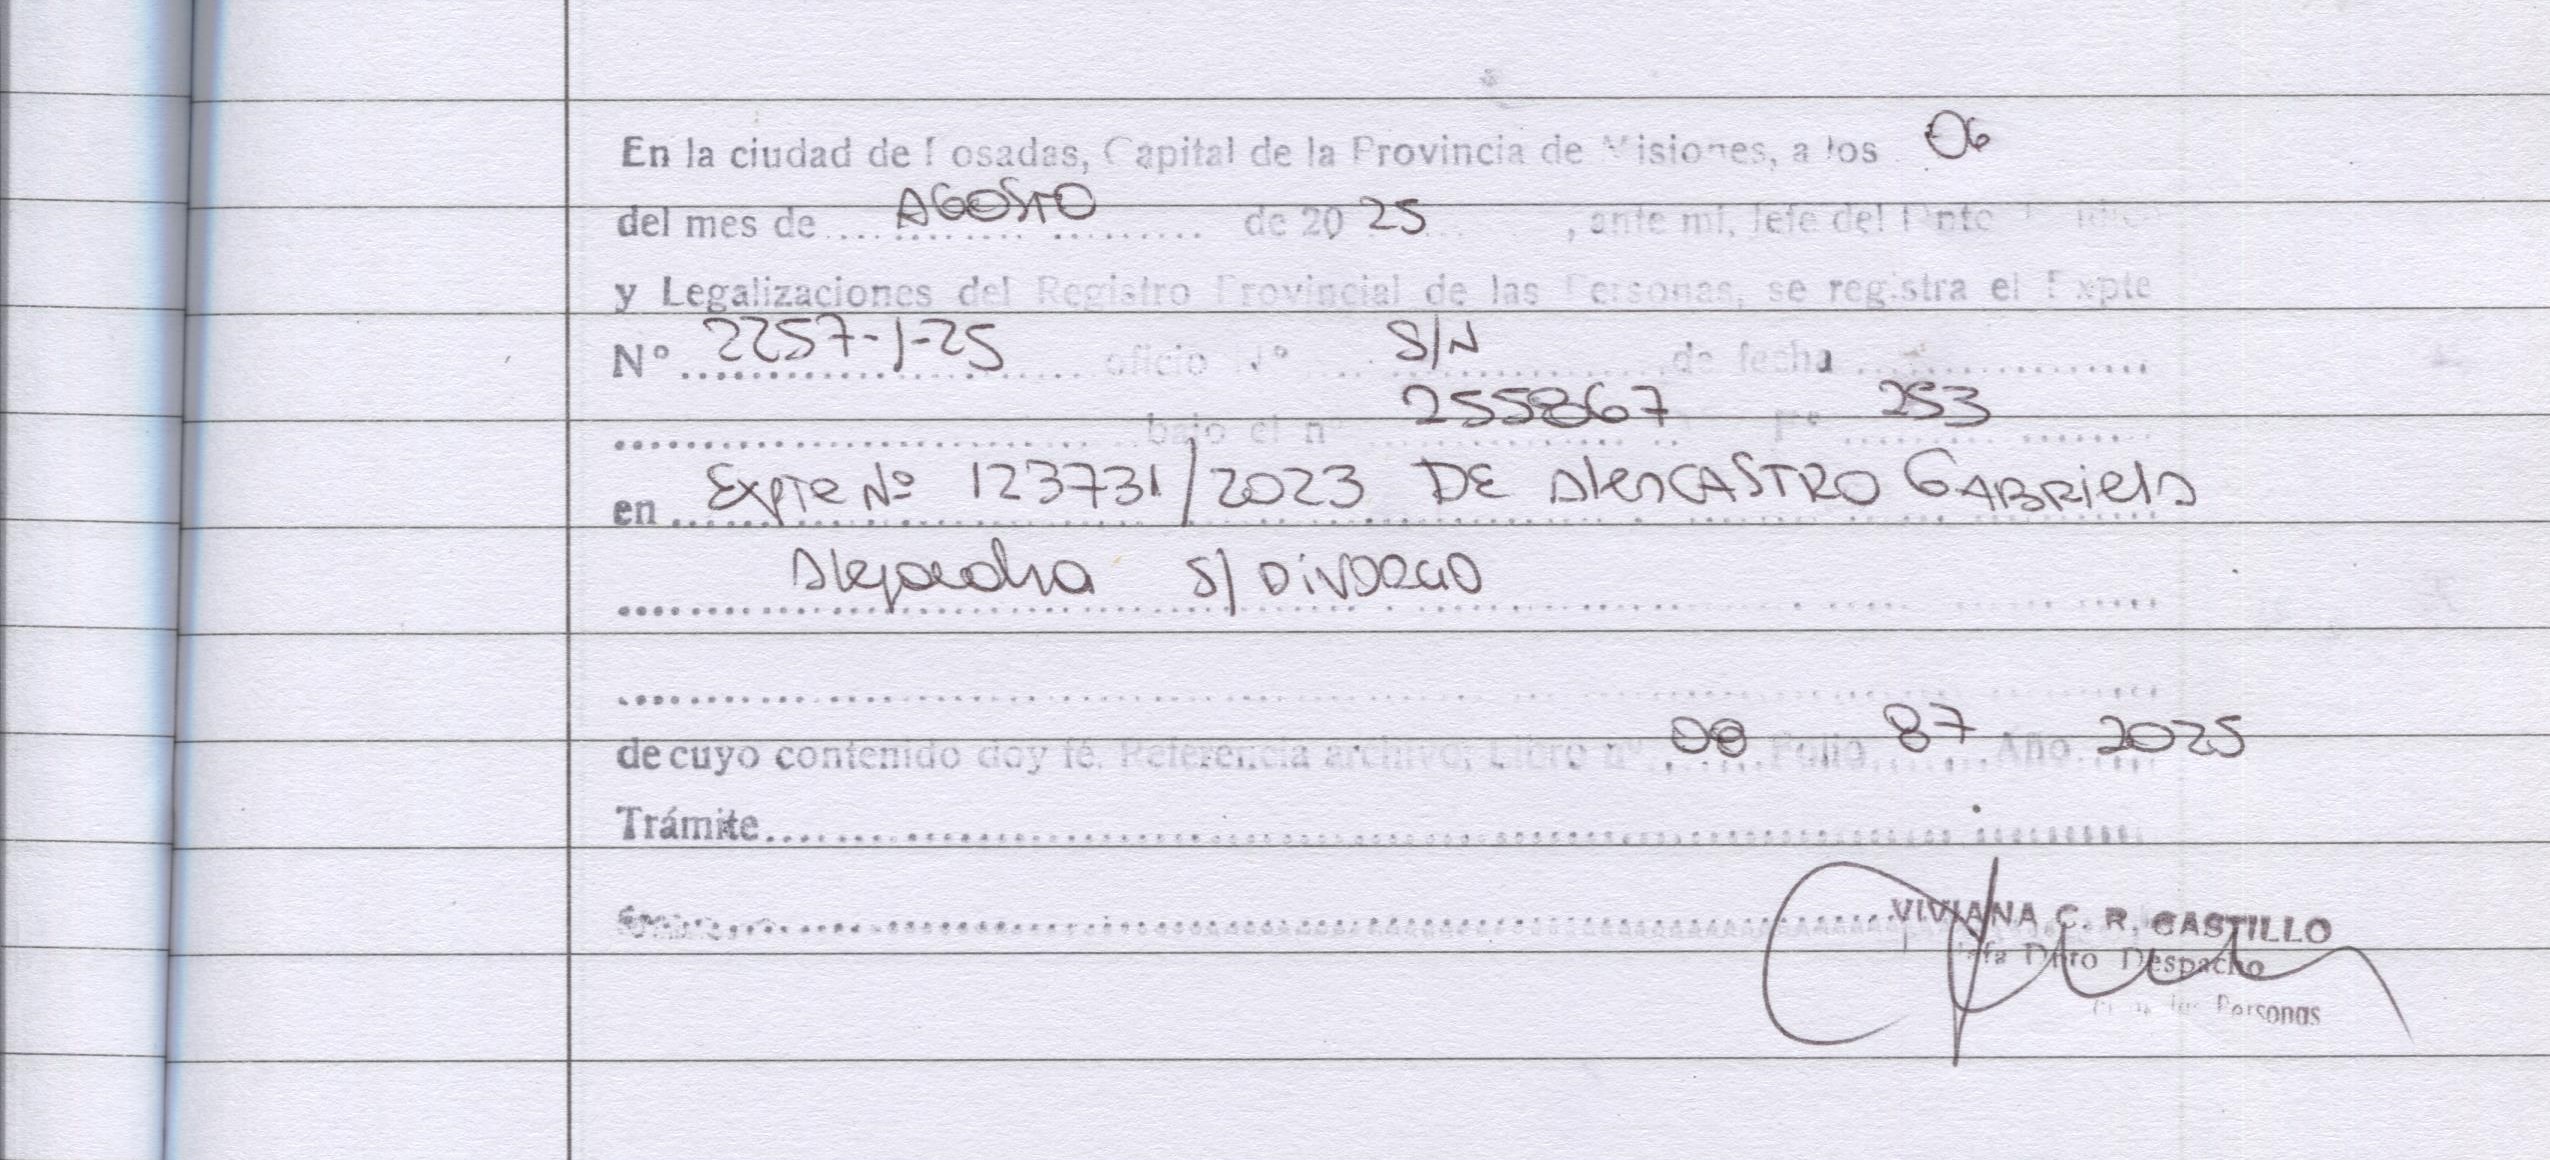 En la ciudad de Posadas, Capital de la Provincia de Misiones, a los 06
del mes de AGOSTO de 20 25, ante mi, Jefe del Dpto
y Legalizaciones del Registro Provincial de las Personas, se registra el Expte
Nº 2257-J-25 oficio Nº S/N de fecha
bajo el nº 255867 Fº 253
en Expte Nº 123731/2023 DE AlenCASTRO GABRiela
Alejandra S/ DiVORCiO
de cuyo contenido doy fé. Referencia archivo: Libro nº 08 Folio 87 Año 2025
Trámite
VIVIANA C. R. CASTILLO
Jefa Dpto Despacho
de las Personas